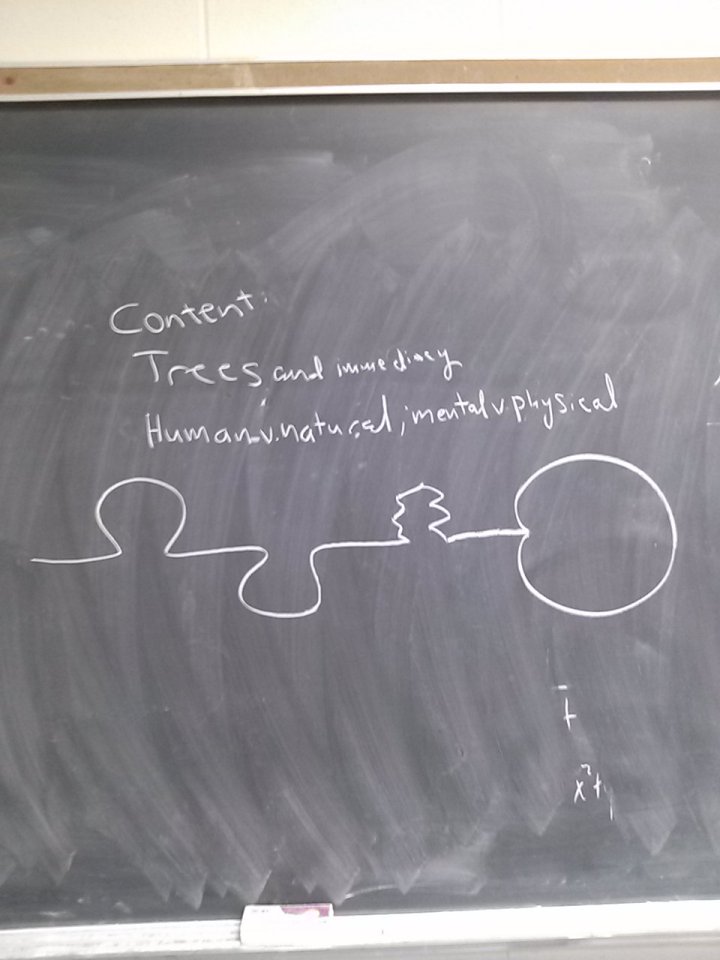 Content:
Trees and immediacy
Human v. natural; mental v. physical
x²+